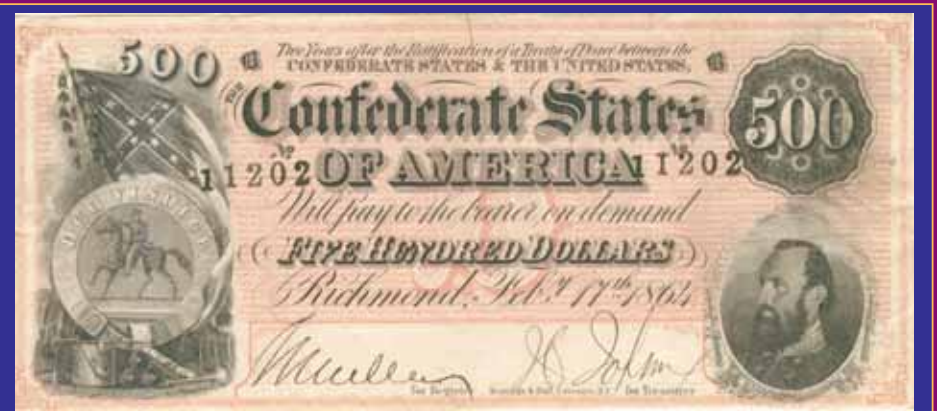 500
Two Years after the Ratification of a Treaty of Peace between the
CONFEDERATE STATES & THE UNITED STATES,
THE
Confederate States 500
No No
11202 OF AMERICA 11202
Will pay to the bearer on demand
FIVE HUNDRED DOLLARS
Richmond, Feby 17th 1864
for Register for Treasurer